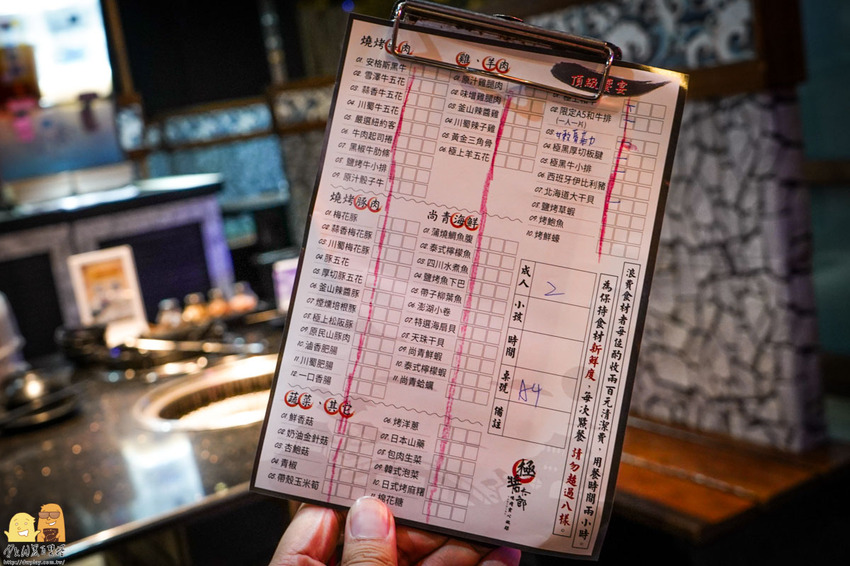 燒烤牛肉
01 安格斯黑牛
02 雪瀅牛五花
03 蒜香牛五花
04 川蜀牛五花
05 嚴選紐約客
06 牛肉起司捲
07 黑椒牛肋條
08 鹽烤牛小排
09 原汁骰子牛
燒烤豚肉
01 梅花豚
02 蒜香梅花豚
03 川蜀梅花豚
04 豚五花
05 厚切豚五花
06 釜山辣醬豚
07 煙燻培根豚
08 極上松阪豚
09 原民山豚肉
10 滷香肥腸
11 川蜀肥腸
12 一口香腸
蔬菜、其它
01 鮮香菇
02 奶油金針菇
03 杏鮑菇
04 青椒
05 帶殼玉米筍
06 烤洋蔥
07 日本山藥
08 包肉生菜
09 韓式泡菜
10 日式烤麻糬
11 棉花糖
雞、羊肉
01 原汁雞腿肉
02 味增雞腿肉
03 釜山辣醬雞
04 川蜀辣子雞
05 黃金三角骨
06 極上羊五花
尚青海鮮
01 蒲燒鯛魚腹
02 泰式檸檬魚
03 四川水煮魚
04 鹽烤魚下巴
05 帶子柳葉魚
06 澎湖小卷
07 特選海扇貝
08 天珠干貝
09 尚青鮮蝦
10 泰式檸檬蝦
11 尚青蛤蠣
頂級饗宴
02 限定A5和牛排
(一人一片)
04 極黑厚切板腱
05 極黑牛小排
06 西班牙伊比利豬
07 北海道大干貝
08 鹽烤草蝦
09 烤鮑魚
10 烤鮮蠔
成人 2
小孩
時間
桌號 A4
備註
浪費食材者每位酌收兩百元清潔費，用餐時間兩小時。
為保持食材新鮮度，每次點餐請勿超過八樣。
極
http://darplay.com.tw/